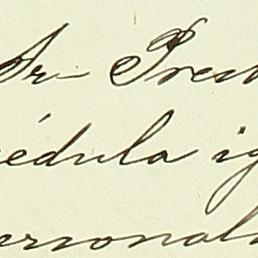 Sr. Pres
cédula ig
personal